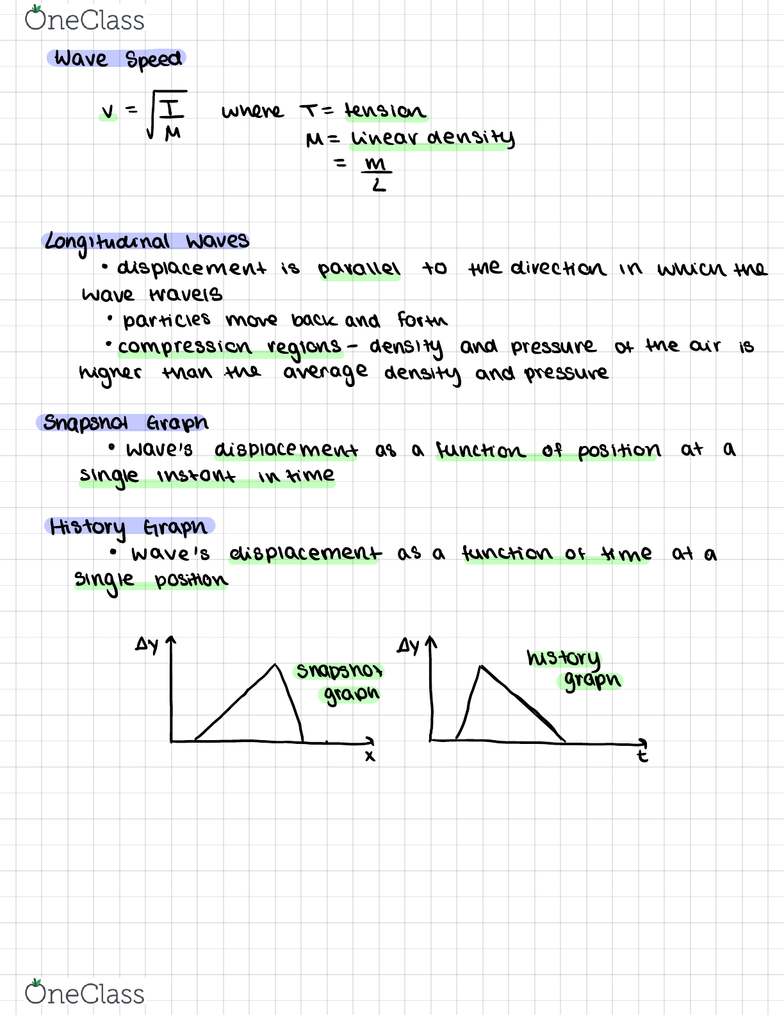 OneClass
Wave Speed
v = √T/μ where T = tension
μ = linear density
= m/L
Longitudinal Waves
• displacement is parallel to the direction in which the
wave travels
• particles move back and forth
• compression regions – density and pressure of the air is
higher than the average density and pressure
Snapshot Graph
• wave's displacement as a function of position at a
single instant in time
History Graph
• wave's displacement as a function of time at a
single position
Δy snapshot graph x
Δy history graph t
OneClass